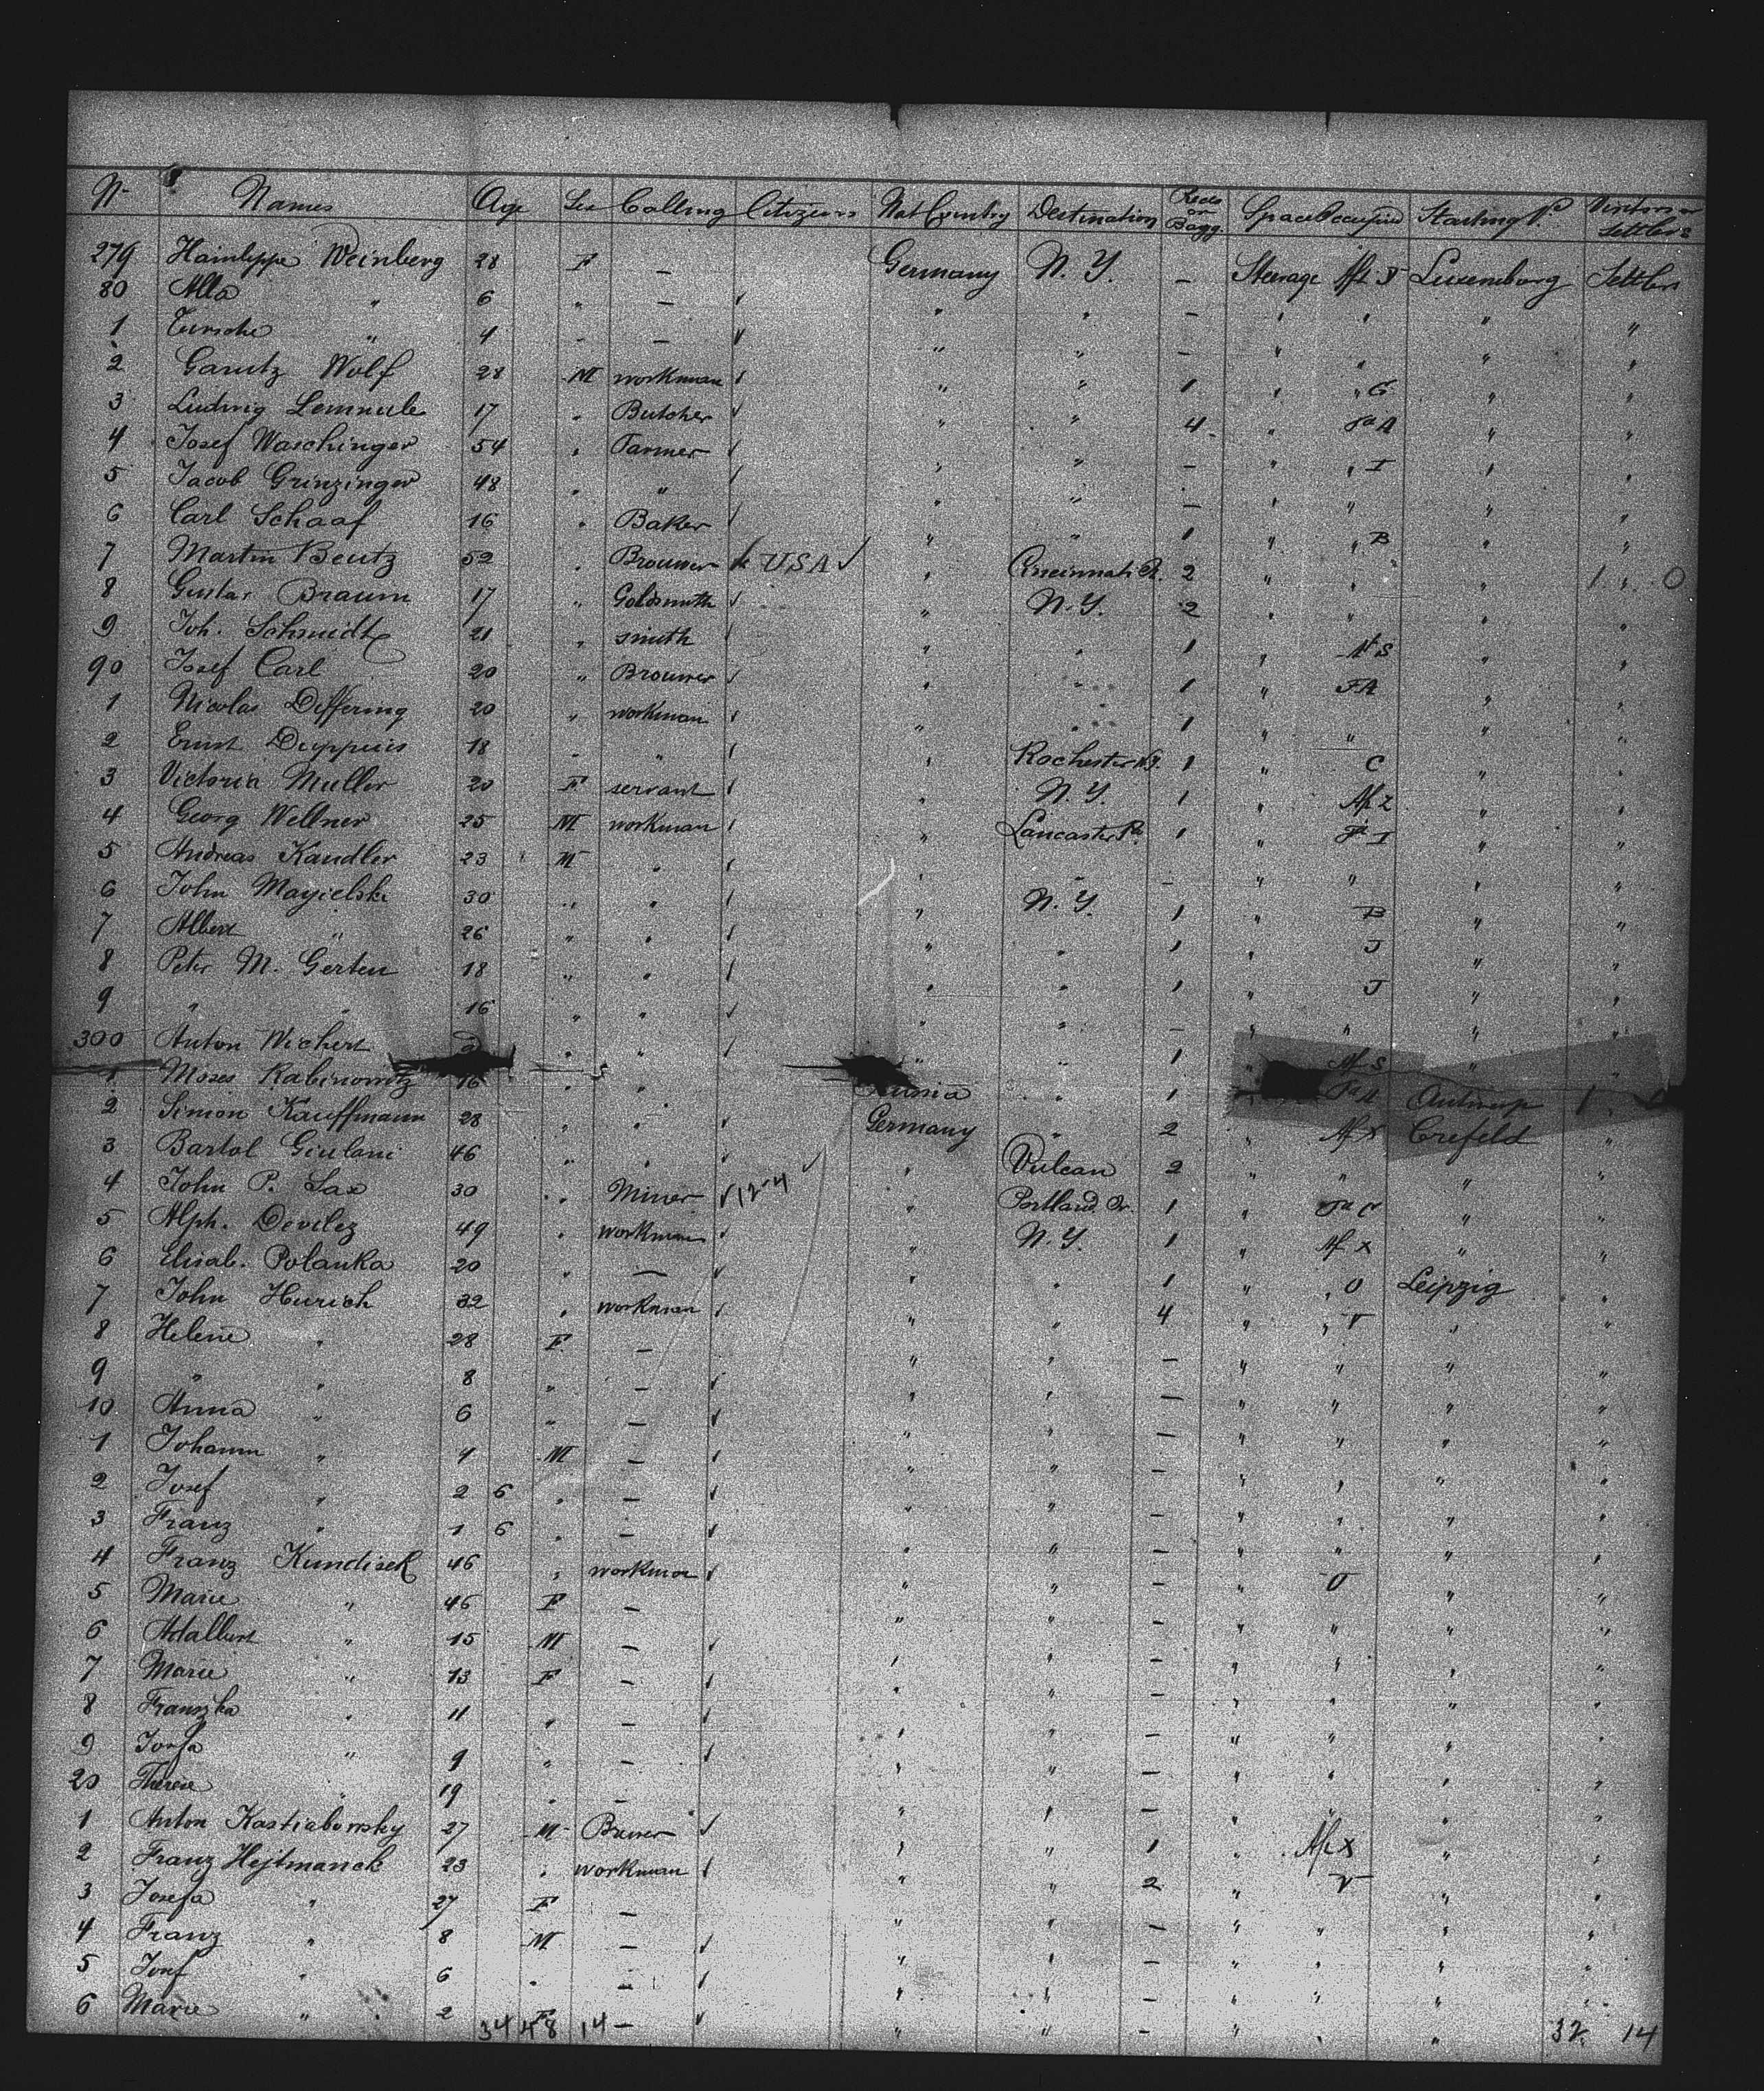 No Names Age Sex Calling Citizens Nat Country Destination Pieces or Bagg. Space Occupied Starting P. Settlers
279 Weinberg 28 F — Germany N. Y. — Steerage Aft Luxemburg Settlers
80 Alla " 6 " — " " — " " " "
1 " 4 " — " " — " " " "
2 Wolf 28 M workman " " 1 " " G " "
3 Ludwig 17 " Butcher " " 4 " A " "
4 Josef Waschinger 54 " Farmer " " — " " I " "
5 Jacob Grinzinger 48 " " " " — " " " "
6 Carl Schaaf 16 " Baker " " 1 " " B " "
7 Martin Beutz 52 " Brouwer U.S.A " Cincinnati 2 " " " 1 " 0
8 Gustav Braum 17 " Goldsmith " N. Y. 2 " " " "
9 Joh. Schmidt 21 " smith " " 1 " S " "
90 Josef Carl 20 " Brouwer " " 1 " " "
1 Nicolas Differing 20 " workman " " 1 " " " "
2 Ernst Duppuis 18 " " " Rochester 1 " C " "
3 Victoria Muller 20 F servant " N. Y. 1 " Af Z " "
4 Georg Wellner 25 M workman " Lancaster Pa. 1 " I " "
5 Andreas Kandler 23 M " " " — " " " "
6 John Mayielski 30 " " " N. Y. 1 " B " "
7 Albert " 26 " " " " 1 " J " "
8 Peter M. Gerten 18 " " " " 1 " J " "
9 " " 16 " " " " — " " " "
300 Anton Wichert " " " " 1 " Af S " "
1 Moses Rabinowitz 16 " " Russia " 1 Antwerp 1
2 Simon Kauffmann 28 " " Germany " 2 " Af X Crefeld "
3 Bartol Giulani 46 " " " Vulcan 2 " " " "
4 John P. Sax 30 " Miner 12-4 " Portland Or. 1 " " "
5 Alph. Devilez 49 " workman " N. Y. 1 " Af X " "
6 Elisab. Polanka 20 " — " " 1 " " O Leipzig "
7 John Hurich 32 " workman " " 4 " " V " "
8 Helene " 28 F — " " — " " " "
9 " " 8 " — " " — " " " "
10 Anna " 6 " — " " — " " " "
1 Johann " 4 M — " " — " " " "
2 Josef " 2 6 " — " " — " " " "
3 Franz " 1 6 " — " " — " " " "
4 Franz Kundisek 46 " workman " " — " " "
5 Marie " 46 F — " " — " " " "
6 Adalbert " 15 M — " " — " " " "
7 Marie " 13 F — " " — " " " "
8 Franszka " 11 " — " " — " " " "
9 Josfa " 9 " — " " — " " " "
20 Therese " 19 " — " " — " " " "
1 Anton Kastialowsky 27 M Bruwer " " 1 " Af X " "
2 Franz Hejtmanek 23 " workman " " 2 " V " "
3 Josefa " 27 F — " " — " " " "
4 Franz " 8 M — " " — " " " "
5 Josf " 6 " — " " — " " " "
6 Marie " 2 F — " " — " " " "
34 48 14 32 14